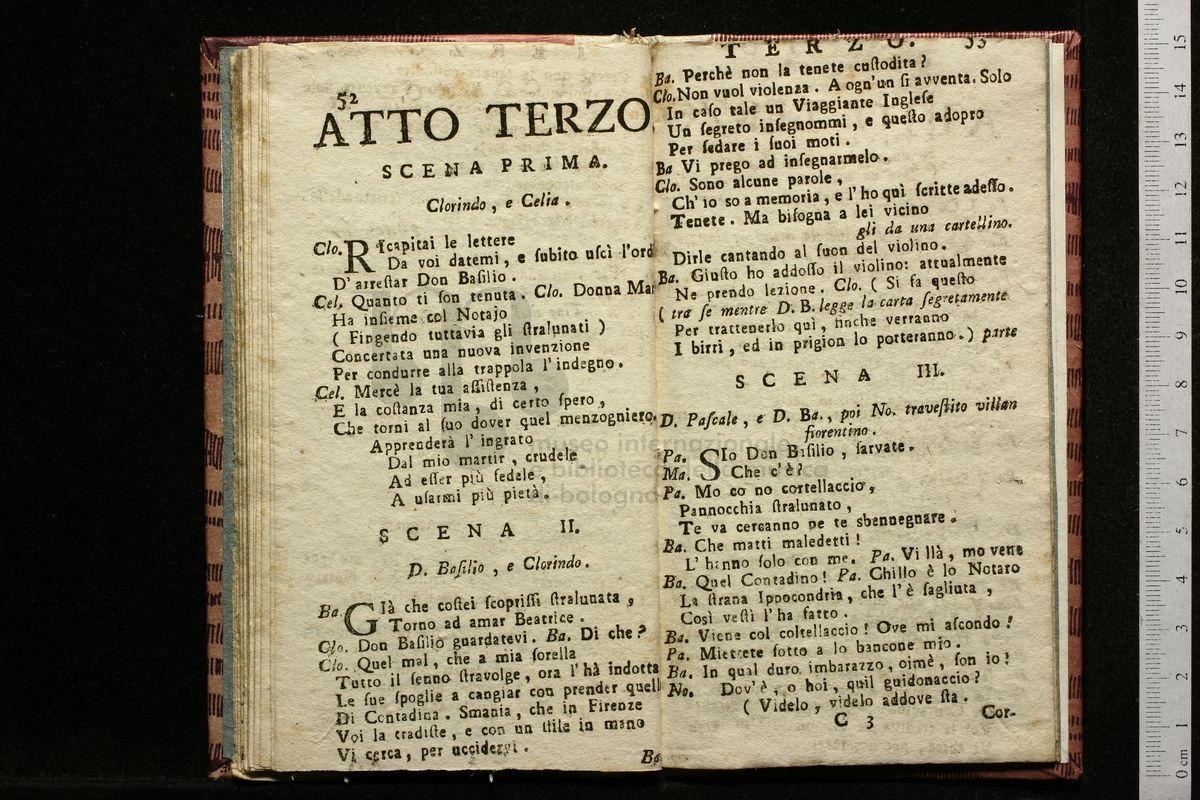 52
ATTO TERZO
SCENA PRIMA.
Clorindo, e Celia.
Clo. Ricapitai le lettere
Da voi datemi, e ſubito uſcì l'ord
D'arreſtar Don Baſilio.
Cel. Quanto ti ſon tenuta. Clo. Donna Mar
Ha inſieme col Notajo
( Fingendo tuttavia gli ſtralunati )
Concertata una nuova invenzione
Per condurre alla trappola l'indegno.
Cel. Mercè la tua aſſiſtenza,
E la coſtanza mia, di certo ſpero,
Che torni al ſuo dover quel menzogniero.
Apprenderà l'ingrato
Dal mio martir, crudele
Ad eſſer più fedele,
A uſarmi più pietà.
SCENA II.
D. Baſilio, e Clorindo.
Ba. Già che coſtei ſcopriſſi ſtralunata,
Torno ad amar Beatrice.
Clo. Don Baſilio guardatevi. Ba. Di che?
Clo. Quel mal, che a mia ſorella
Tutto il ſenno ſtravolge, ora l'hà indotta
Le ſue ſpoglie a cangiar con prender quell
Di Contadina. Smania, che in Firenze
Voi la tradiſte, e con un ſtile in mano
Vi cerca, per uccidervi.
Ba
TERZO. 53
Ba. Perchè non la tenete cuſtodita?
Clo. Non vuol violenza. A ogn'un ſi avventa. Solo
In caſo tale un Viaggiante Ingleſe
Un ſegreto inſegnommi, e queſto adopro
Per ſedare i ſuoi moti.
Ba Vi prego ad inſegnarmelo.
Clo. Sono alcune parole,
Ch'io so a memoria, e l'ho quì ſcritte adeſſo.
Tenete. Ma biſogna a lei vicino
gli da una cartellino.
Dirle cantando al ſuon del violino.
Ba. Giuſto ho addoſſo il violino: attualmente
Ne prendo lezione. Clo. ( Si fa queſto
( tra ſe mentre D. B. legge la carta ſegretamente
Per trattenerlo quì, finche verranno
I birri, ed in prigion lo porteranno.) parte
SCENA III.
D. Paſcale, e D. Ba., poi No. traveſtito villan
fiorentino.
Pa. SIo Don Baſilio, ſarvate.
Ma. Che c'è?
Pa. Mo co no cortellaccio,
Pannocchia ſtralunato,
Te va cercanno pe te sbennegnare.
Ba. Che matti maledetti!
L'hanno ſolo con me. Pa. Vi llà, mo vene
Ba. Quel Contadino! Pa. Chillo è lo Notaro
La ſtrana Ippocondria, che l'è ſagliuta,
Così veſtì l'ha fatto.
Ba. Viene col coltellaccio! Ove mi aſcondo!
Pa. Miettete ſotto a lo bancone mio.
Ba. In qual duro imbarazzo, oimè, ſon io!
No. Dov'è, o hoi, quil guidonaccio?
( Videlo, videlo addove ſta.
C 3
Cor-
museo internazionale
e biblioteca della musica
di bologna
0 cm 1 2 3 4 5 6 7 8 9 10 11 12 13 14 15